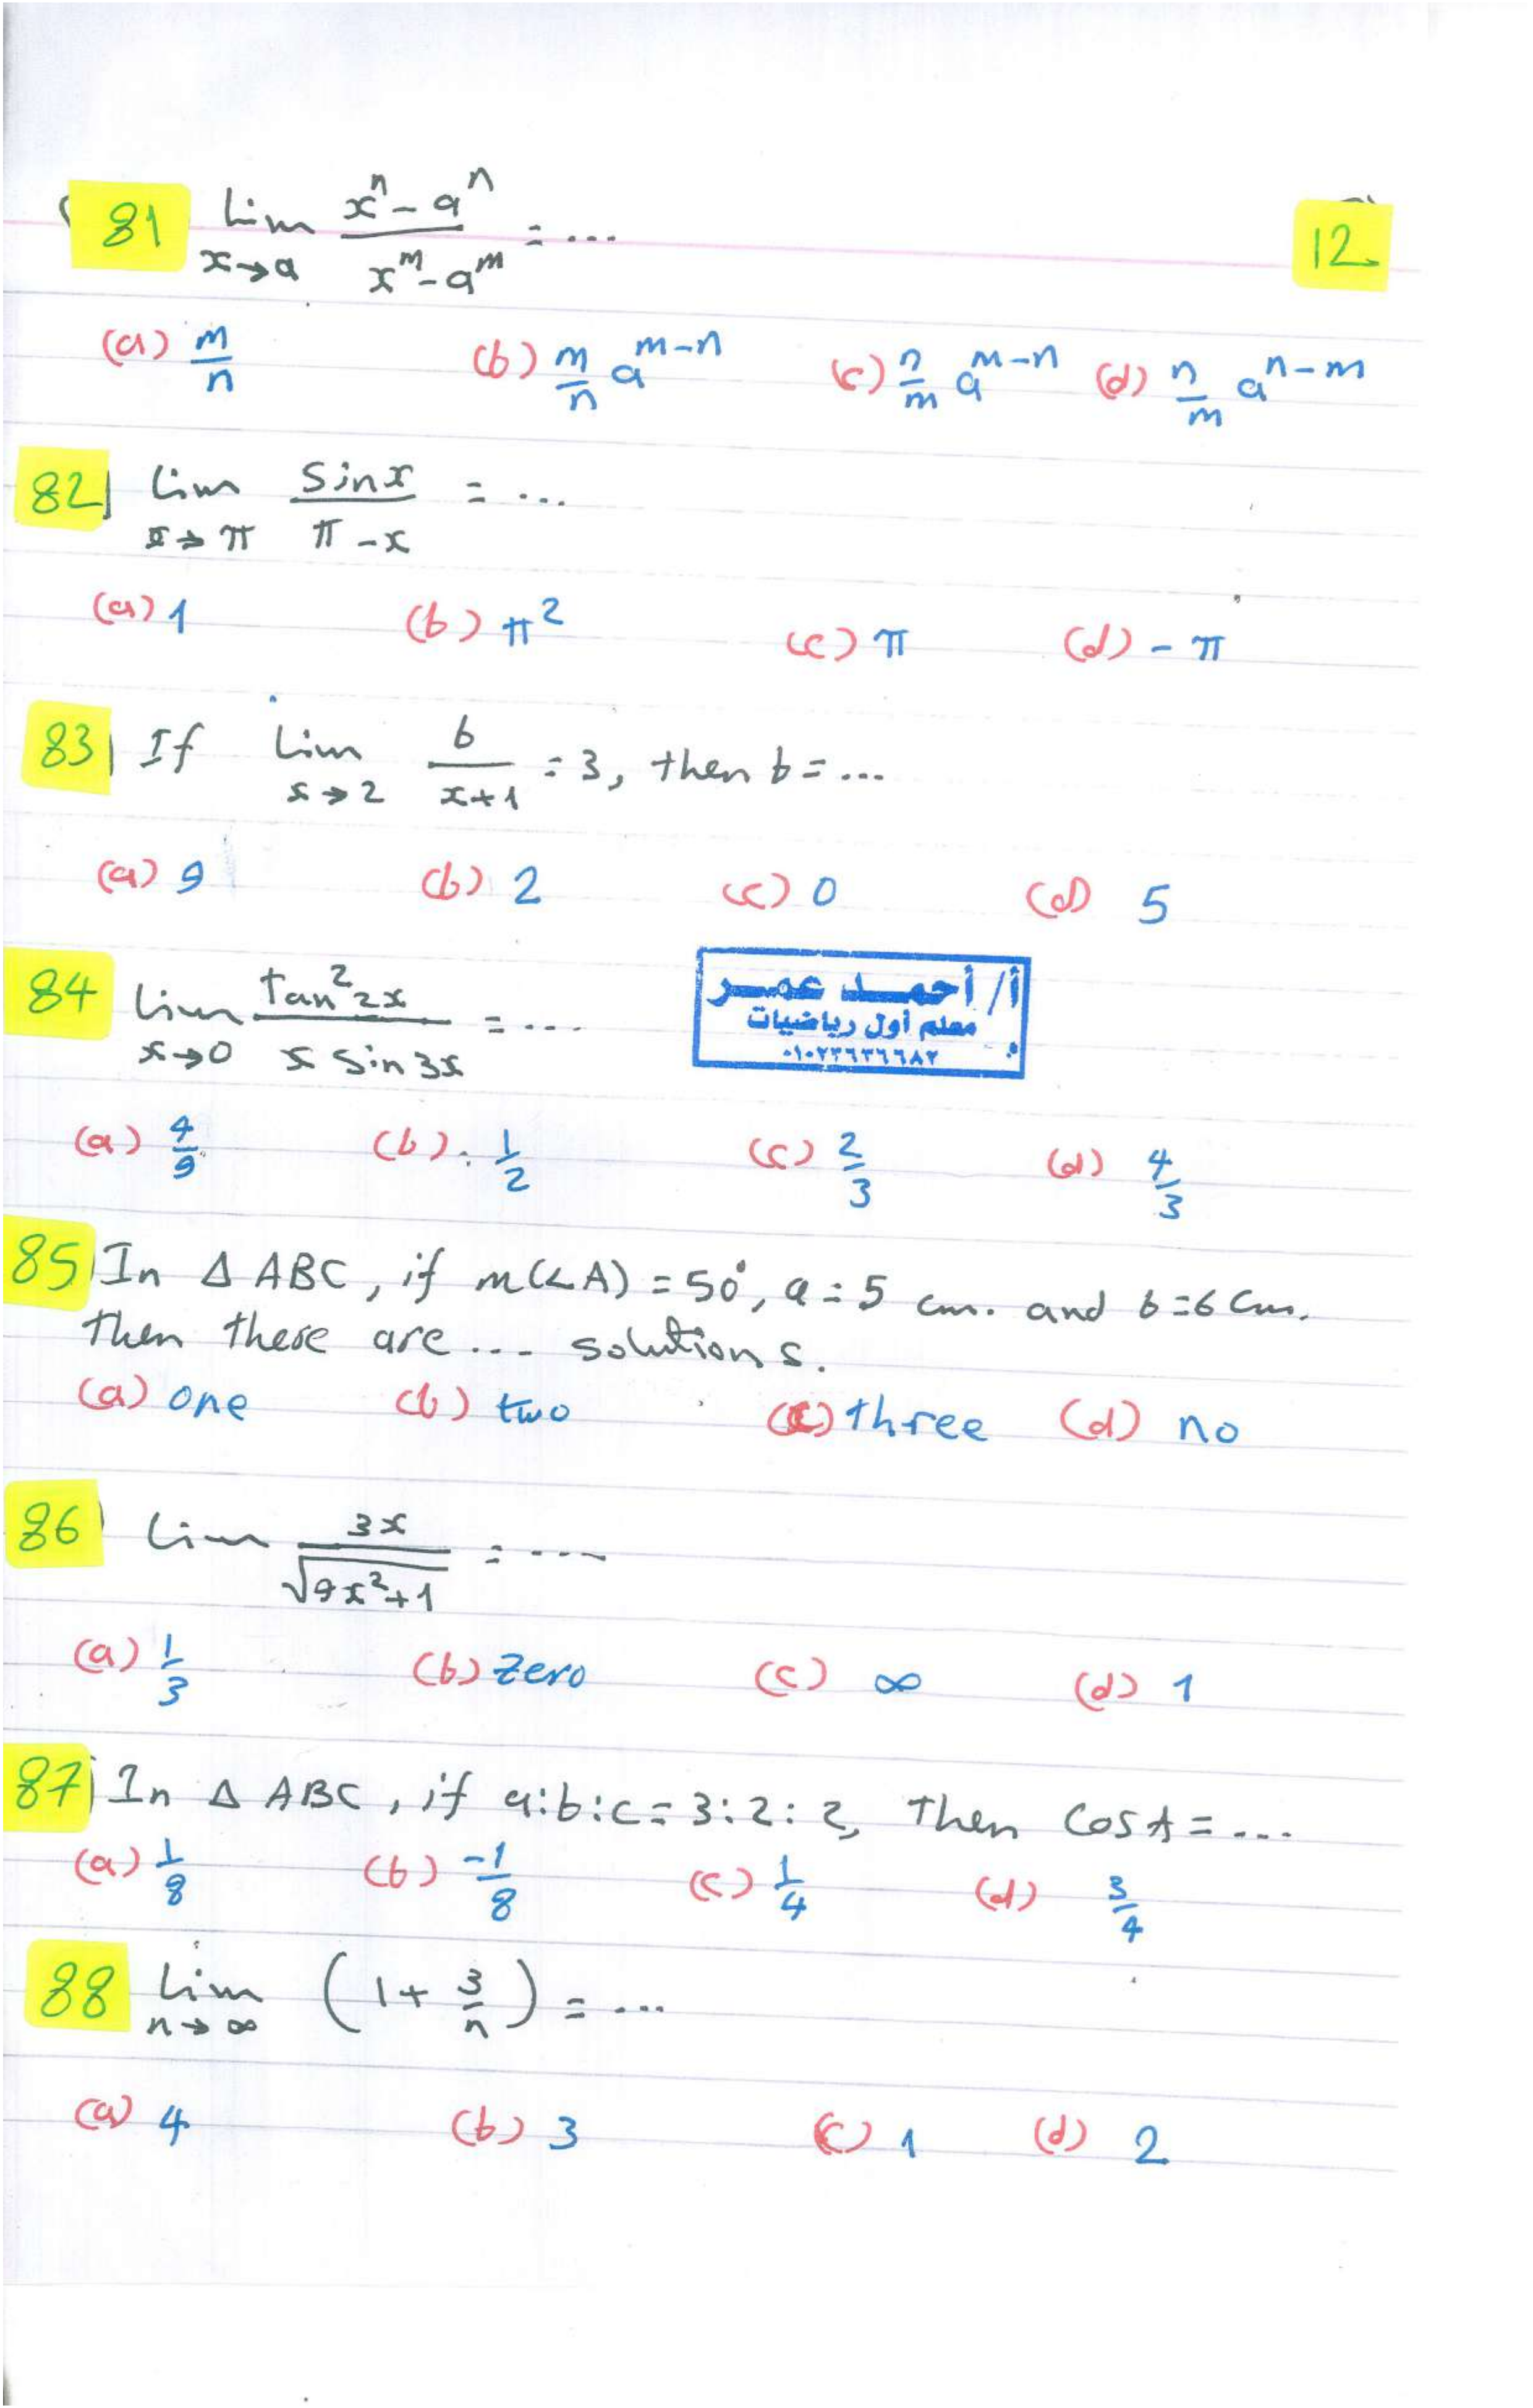 81 Lim x→a (xⁿ - aⁿ)/(xᵐ - aᵐ) = ...
12
(a) m/n (b) m/n a^(m-n) (c) n/m a^(m-n) (d) n/m a^(n-m)
82 Lim x→π Sinx/(π - x) = ...
(a) 1 (b) π² (c) π (d) - π
83 If Lim x→2 b/(x+1) = 3, then b = ...
(a) 9 (b) 2 (c) 0 (d) 5
84 Lim x→0 tan²2x/(x Sin 3x) = ...
أ/ أحمد عمر
معلم أول رياضيات
(a) 4/9 (b) 1/2 (c) 2/3 (d) 4/3
85 In Δ ABC, if m(∠A) = 50°, a = 5 cm. and b = 6 cm.
then there are ... solutions.
(a) one (b) two (c) three (d) no
86 Lim 3x/√(9x²+1) = ....
(a) 1/3 (b) Zero (c) ∞ (d) 1
87 In Δ ABC, if a:b:c = 3:2:2, Then Cos A = ...
(a) 1/8 (b) -1/8 (c) 1/4 (d) 3/4
88 Lim n→∞ (1 + 3/n) = ...
(a) 4 (b) 3 (c) 1 (d) 2